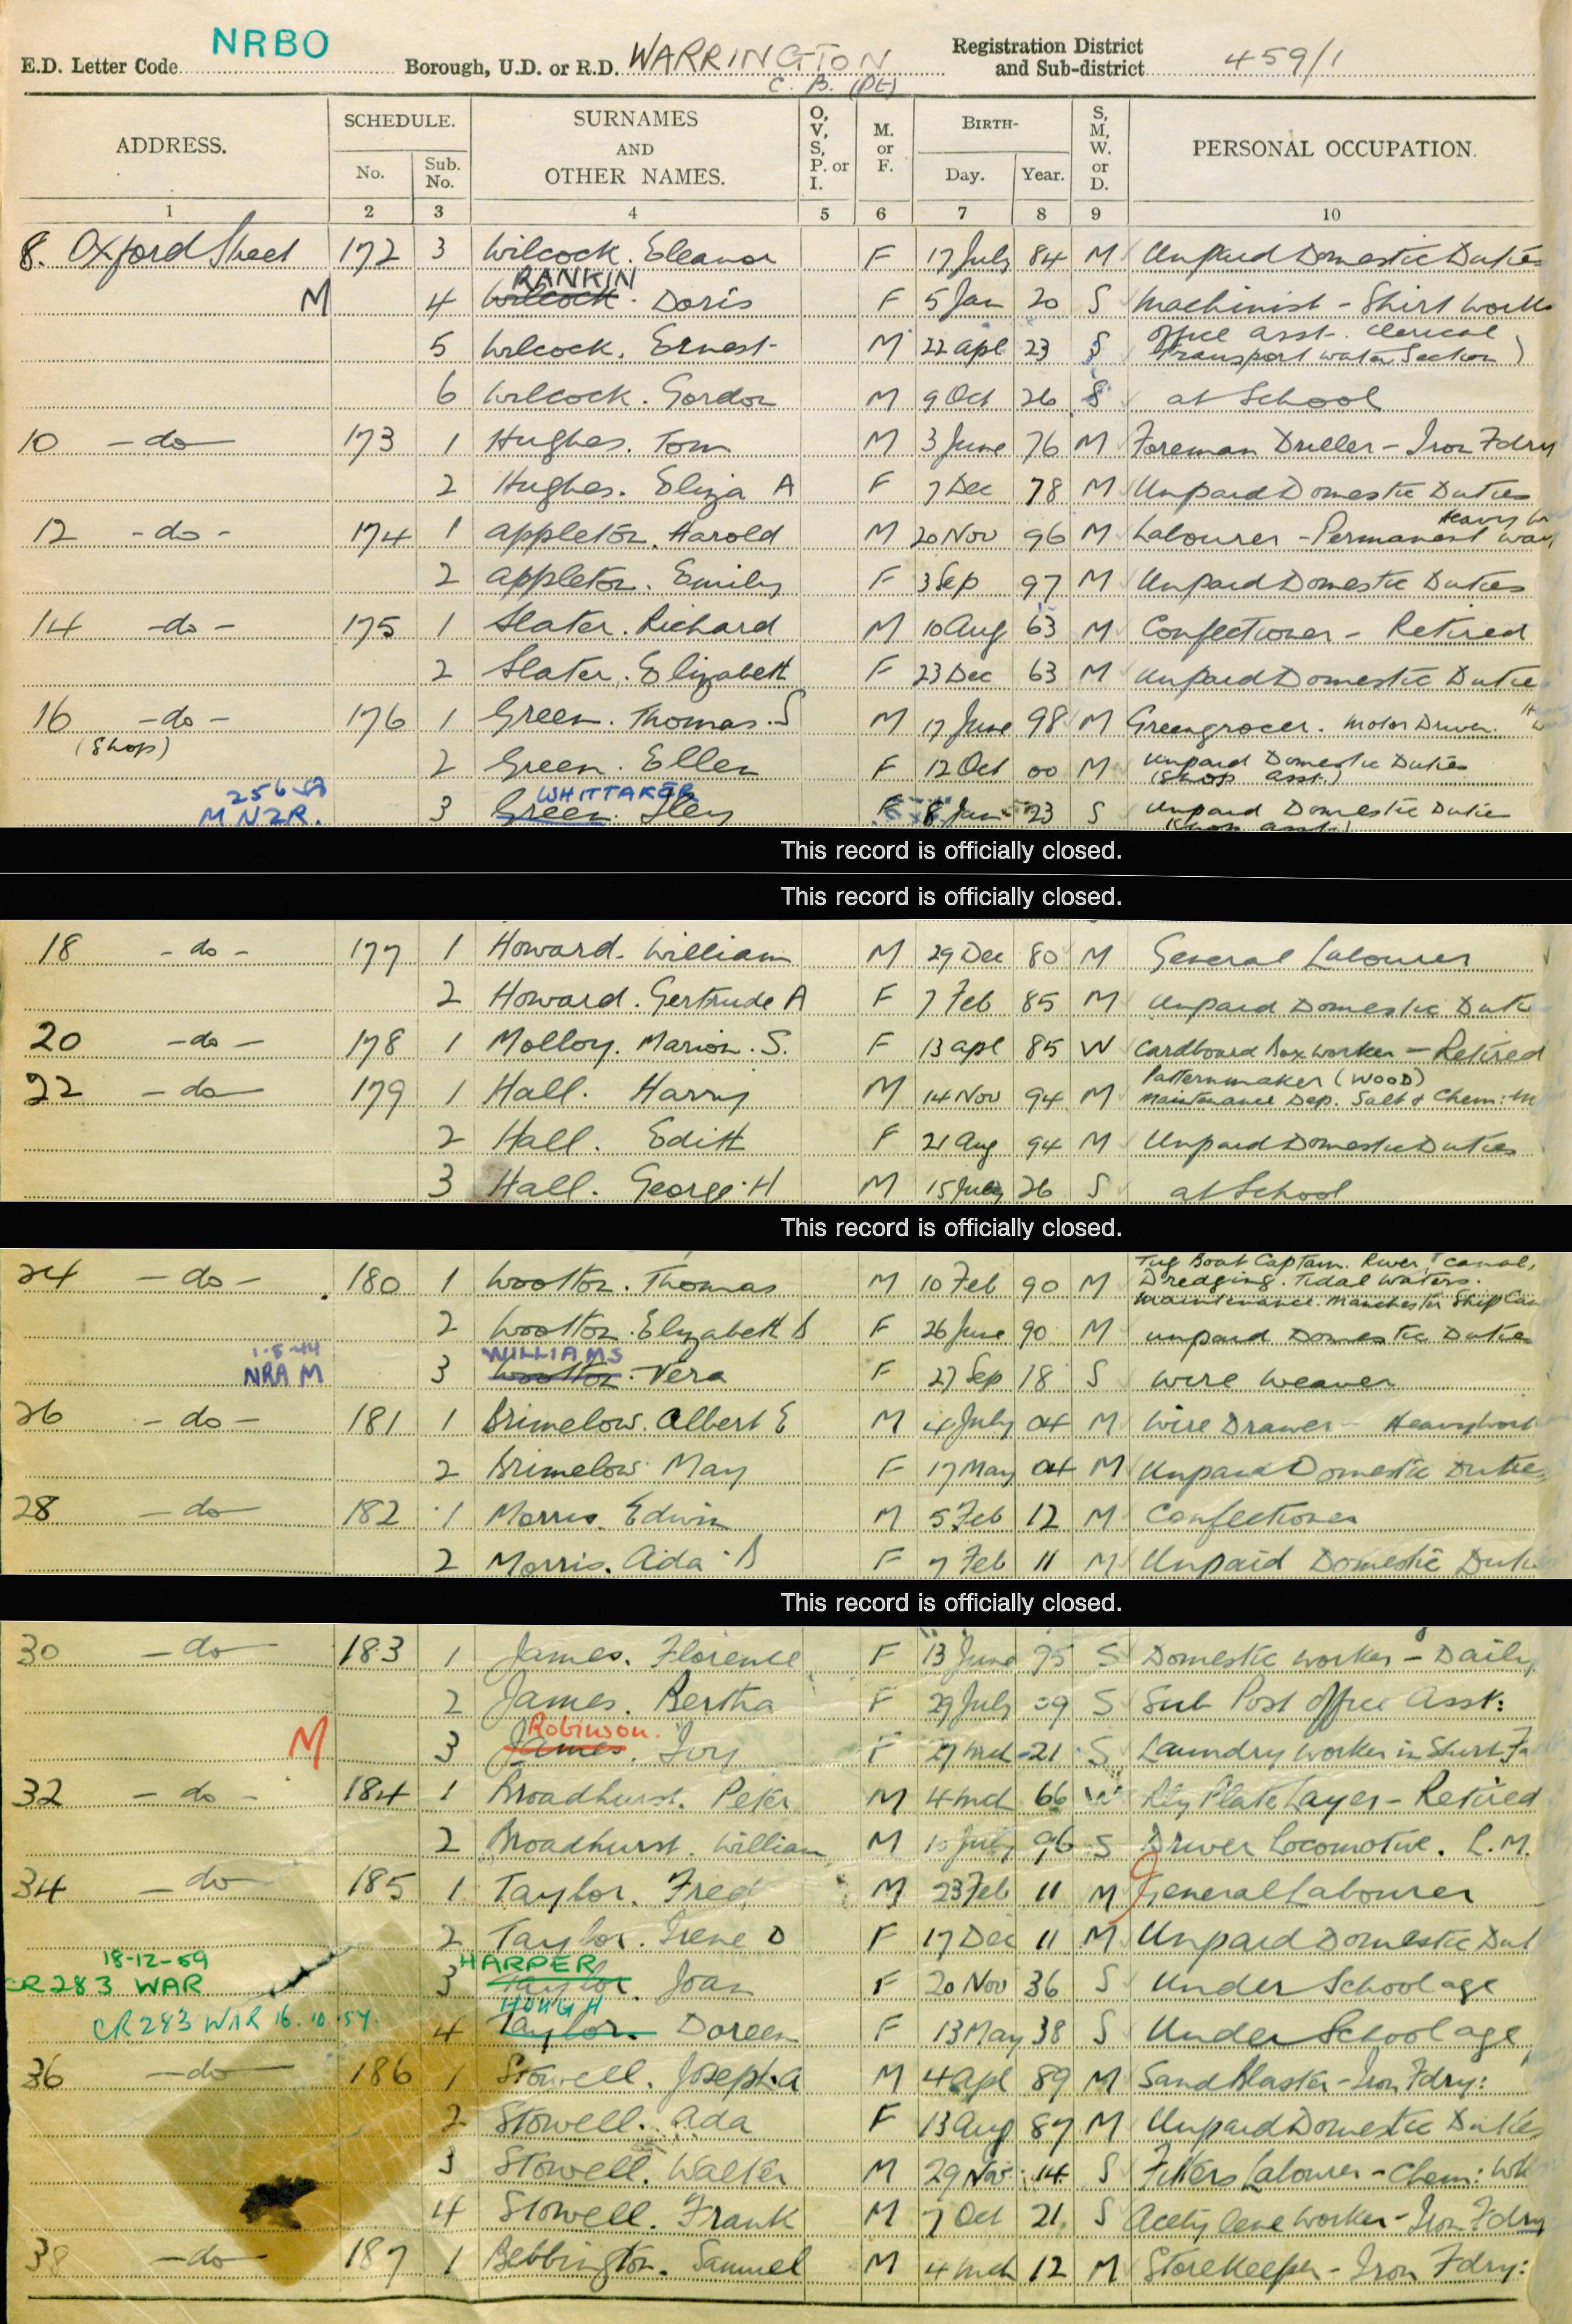 E.D. Letter Code NRBO Borough, U.D. or R.D. WARRINGTON C. B. (Pt) Registration District and Sub-district 459/1
ADDRESS. SCHEDULE. No. Sub. No. SURNAMES AND OTHER NAMES. O, V, S, P. or I. M. or F. BIRTH- Day. Year. S, M, W. or D. PERSONAL OCCUPATION.
1 2 3 4 5 6 7 8 9 10
8. Oxford Street 172 3 Wilcock. Eleanor F 17 July 84 M Unpaid Domestic Duties
RANKIN
M 4 Wilcock. Doris F 5 Jan 20 S Machinist - Shirt Works
5 Wilcock. Ernest M 22 Apl 23 S Office Asst. Clerical
Transport Water Section)
6 Wilcock. Gordon M 9 Oct 26 S at School
10 -do- 173 1 Hughes. Tom M 3 June 76 M Foreman Driller - Iron Fdry
2 Hughes. Eliza A F 7 Dec 78 M Unpaid Domestic Duties
12 -do- 174 1 Appleton. Harold M 20 Nov 96 M Labourer - Permanent Way Heavy
2 Appleton. Emily F 3 Sep 97 M Unpaid Domestic Duties
14 -do- 175 1 Slater. Richard M 10 Aug 63 M Confectioner - Retired
2 Slater. Elizabeth F 23 Dec 63 M Unpaid Domestic Duties
16 -do- 176 1 Green. Thomas. S M 17 June 98 M Greengrocer. Motor Driver.
(Shop) 2 Green. Ellen F 12 Oct 00 M Unpaid Domestic Duties
(Shop Asst.)
WHITTAKER
M NZR. 3 Green. F 8 Jun 23 S Unpaid Domestic Duties
(Shop Asst.)
This record is officially closed.
This record is officially closed.
18 -do- 177 1 Howard. William M 29 Dec 80 M General Labourer
2 Howard. Gertrude A F 7 Feb 85 M Unpaid Domestic Dutie
20 -do- 178 1 Molloy. Marion. S. F 13 Apl 85 W Cardboard Box Worker - Retired
22 -do- 179 1 Hall. Harry M 14 Nov 94 M Patternmaker (WOOD)
Maintenance Dep. Salt & Chem: M
2 Hall. Edith F 21 Aug 94 M Unpaid Domestic Duties
3 Hall. George H M 15 July 26 S at School
This record is officially closed.
24 -do- 180 1 Wootton. Thomas M 10 Feb 90 M Tug Boat Captain. River, Canal,
Dredging. Tidal Waters.
Maintenance. Manchester Ship Can
2 Wootton. Elizabeth B F 26 June 90 M Unpaid Domestic Duties
1-5-44 WILLIAMS
NRA M 3 Wootton. Vera F 27 Sep 18 S Wire Weaver
26 -do- 181 1 Brimelow. Albert E M 4 July 04 M Wire Drawer - Heavy Work
2 Brimelow. May F 17 May 04 M Unpaid Domestic Duties
28 -do- 182 1 Morris. Edwin M 5 Feb 12 M Confectioner
2 Morris. Aida B F 7 Feb 11 M Unpaid Domestic Dutie
This record is officially closed.
30 -do- 183 1 James. Florence F 13 June 95 S Domestic Worker - Daily
2 James. Bertha F 29 July 09 S Sub Post Office Asst:
Robinson.
M 3 James. Ivy F 27 Mch 21 S Laundry Worker in Shirt Fa
32 -do- 184 1 Broadhurst. Peter M 4 Mch 66 W Rly Plate Layer - Retired
2 Broadhurst. William M 10 July 96 S Driver Locomotive. L.M.
34 -do- 185 1 Taylor. Fred M 23 Feb 11 M General Labourer
2 Taylor. Irene D F 17 Dec 11 M Unpaid Domestic Dut
18-12-59 HARPER
CR283 WAR 3 Taylor. Joan F 20 Nov 36 S Under School age
HOUGH
CR283 WAR 16.10.57. 4 Taylor. Doreen F 13 May 38 S Under School age
36 -do- 186 1 Stowell. Joseph A M 4 Apl 89 M Sand Blaster - Iron Fdry:
2 Stowell. Ada F 13 Aug 87 M Unpaid Domestic Duties
3 Stowell. Walter M 29 Nov 14 S Fitters Labourer - Chem: Wk
4 Stowell. Frank M 7 Oct 21 S Acetylene Worker - Iron Fdry
38 -do- 187 1 Bebbington. Samuel M 4 Mch 12 M Storekeeper - Iron Fdry: